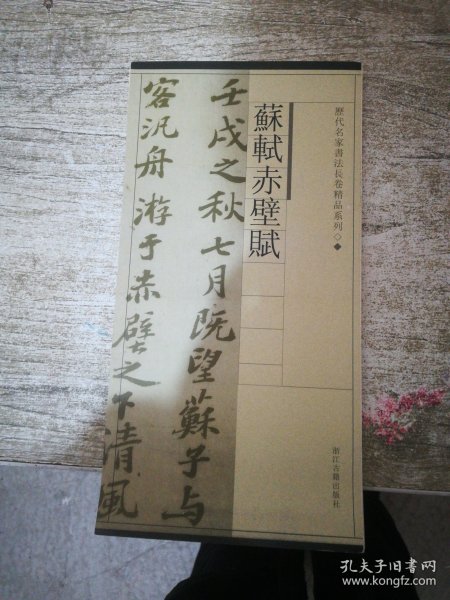 歷代名家書法長卷精品系列◇◆
蘇軾赤壁賦
壬戌之秋七月既望蘇子与
客汎舟游于赤壁之下清風
浙江古籍出版社
孔夫子旧书网
www.kongfz.com